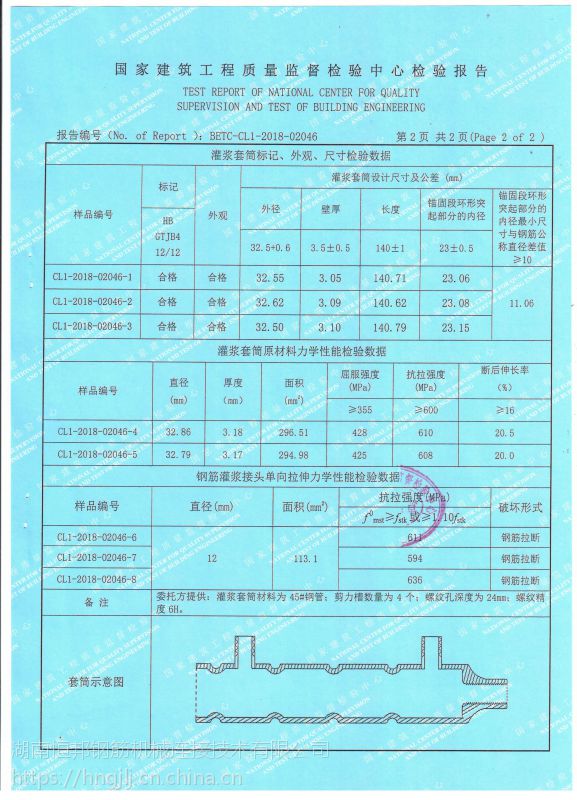 国家建筑工程质量监督检验中心检验报告
TEST REPORT OF NATIONAL CENTER FOR QUALITY
SUPERVISION AND TEST OF BUILDING ENGINEERING
报告编号（No. of Report ）：BETC-CL1-2018-02046 第 2 页 共 2 页(Page 2 of 2 )
灌浆套筒标记、外观、尺寸检验数据
样品编号 标记 外观 灌浆套筒设计尺寸及公差 (mm)
HB
GTJB4
12/12
外径 壁厚 长度 锚固段环形突起部分的内径 锚固段环形突起部分的内径最小尺寸与钢筋公称直径差值≥10
32.5±0.6 3.5±0.5 140±1 23±0.5
CL1-2018-02046-1 合格 合格 32.55 3.05 140.71 23.06 11.06
CL1-2018-02046-2 合格 合格 32.62 3.09 140.62 23.08
CL1-2018-02046-3 合格 合格 32.50 3.10 140.79 23.15
灌浆套筒原材料力学性能检验数据
样品编号 直径(mm) 厚度(mm) 面积(mm²) 屈服强度(MPa) 抗拉强度(MPa) 断后伸长率(%)
≥355 ≥600 ≥16
CL1-2018-02046-4 32.86 3.18 296.51 428 610 20.5
CL1-2018-02046-5 32.79 3.17 294.98 425 608 20.0
钢筋灌浆接头单向拉伸力学性能检验数据
样品编号 直径(mm) 面积(mm²) 抗拉强度(MPa) 破坏形式
f⁰mst≥fstk或≥1.10fstk
CL1-2018-02046-6 12 113.1 611 钢筋拉断
CL1-2018-02046-7 594 钢筋拉断
CL1-2018-02046-8 636 钢筋拉断
备 注 委托方提供：灌浆套筒材料为 45#钢管；剪力槽数量为 4 个；螺纹孔深度为 24mm；螺纹精
度 6H。
套筒示意图
湖南恒邦钢筋机械连接技术有限公司
https://hngjlj.cn.china.cn